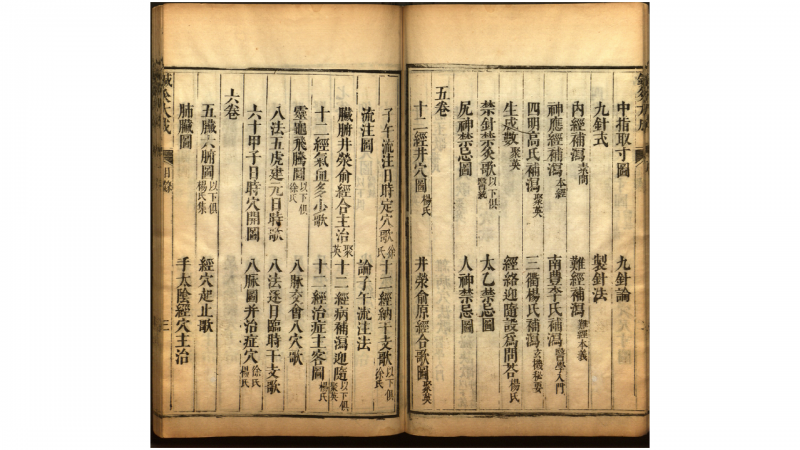 中指取寸圖 九針論
九針式 製針法
內經補瀉素問 難經補瀉難經本義
神應經補瀉本經 南豊李氏補瀉醫學入門
四明高氏補瀉聚英 三衢楊氏補瀉玄機秘要
生成數聚英 經絡迎隨設爲問答楊氏
禁針禁灸歌以下俱醫統 太乙禁忌圖
尻神禁忌圖 人神禁忌圖
五卷
十二經井穴圖楊氏 井滎俞原經合歌圖聚英
子午流注日時定穴歌徐氏 十二經納干支歌以下俱徐氏
流注圖 論子午流注法
臟腑井滎俞經合主治聚英 十二經病補瀉迎隨以下俱聚英
十二經氣血多少歌 十二經治症主客圖楊氏
靈龜飛騰圖以下俱徐氏 八脉交會八穴歌
八法五虎建元日時歌 八法逐日臨時干支歌
六十甲子日時穴開圖 八脉圖并治症穴徐氏楊氏
六卷
五臟六腑圖以下俱楊氏集 經穴起止歌
肺臟圖 手太陰經穴主治
鍼灸大成 目錄 三